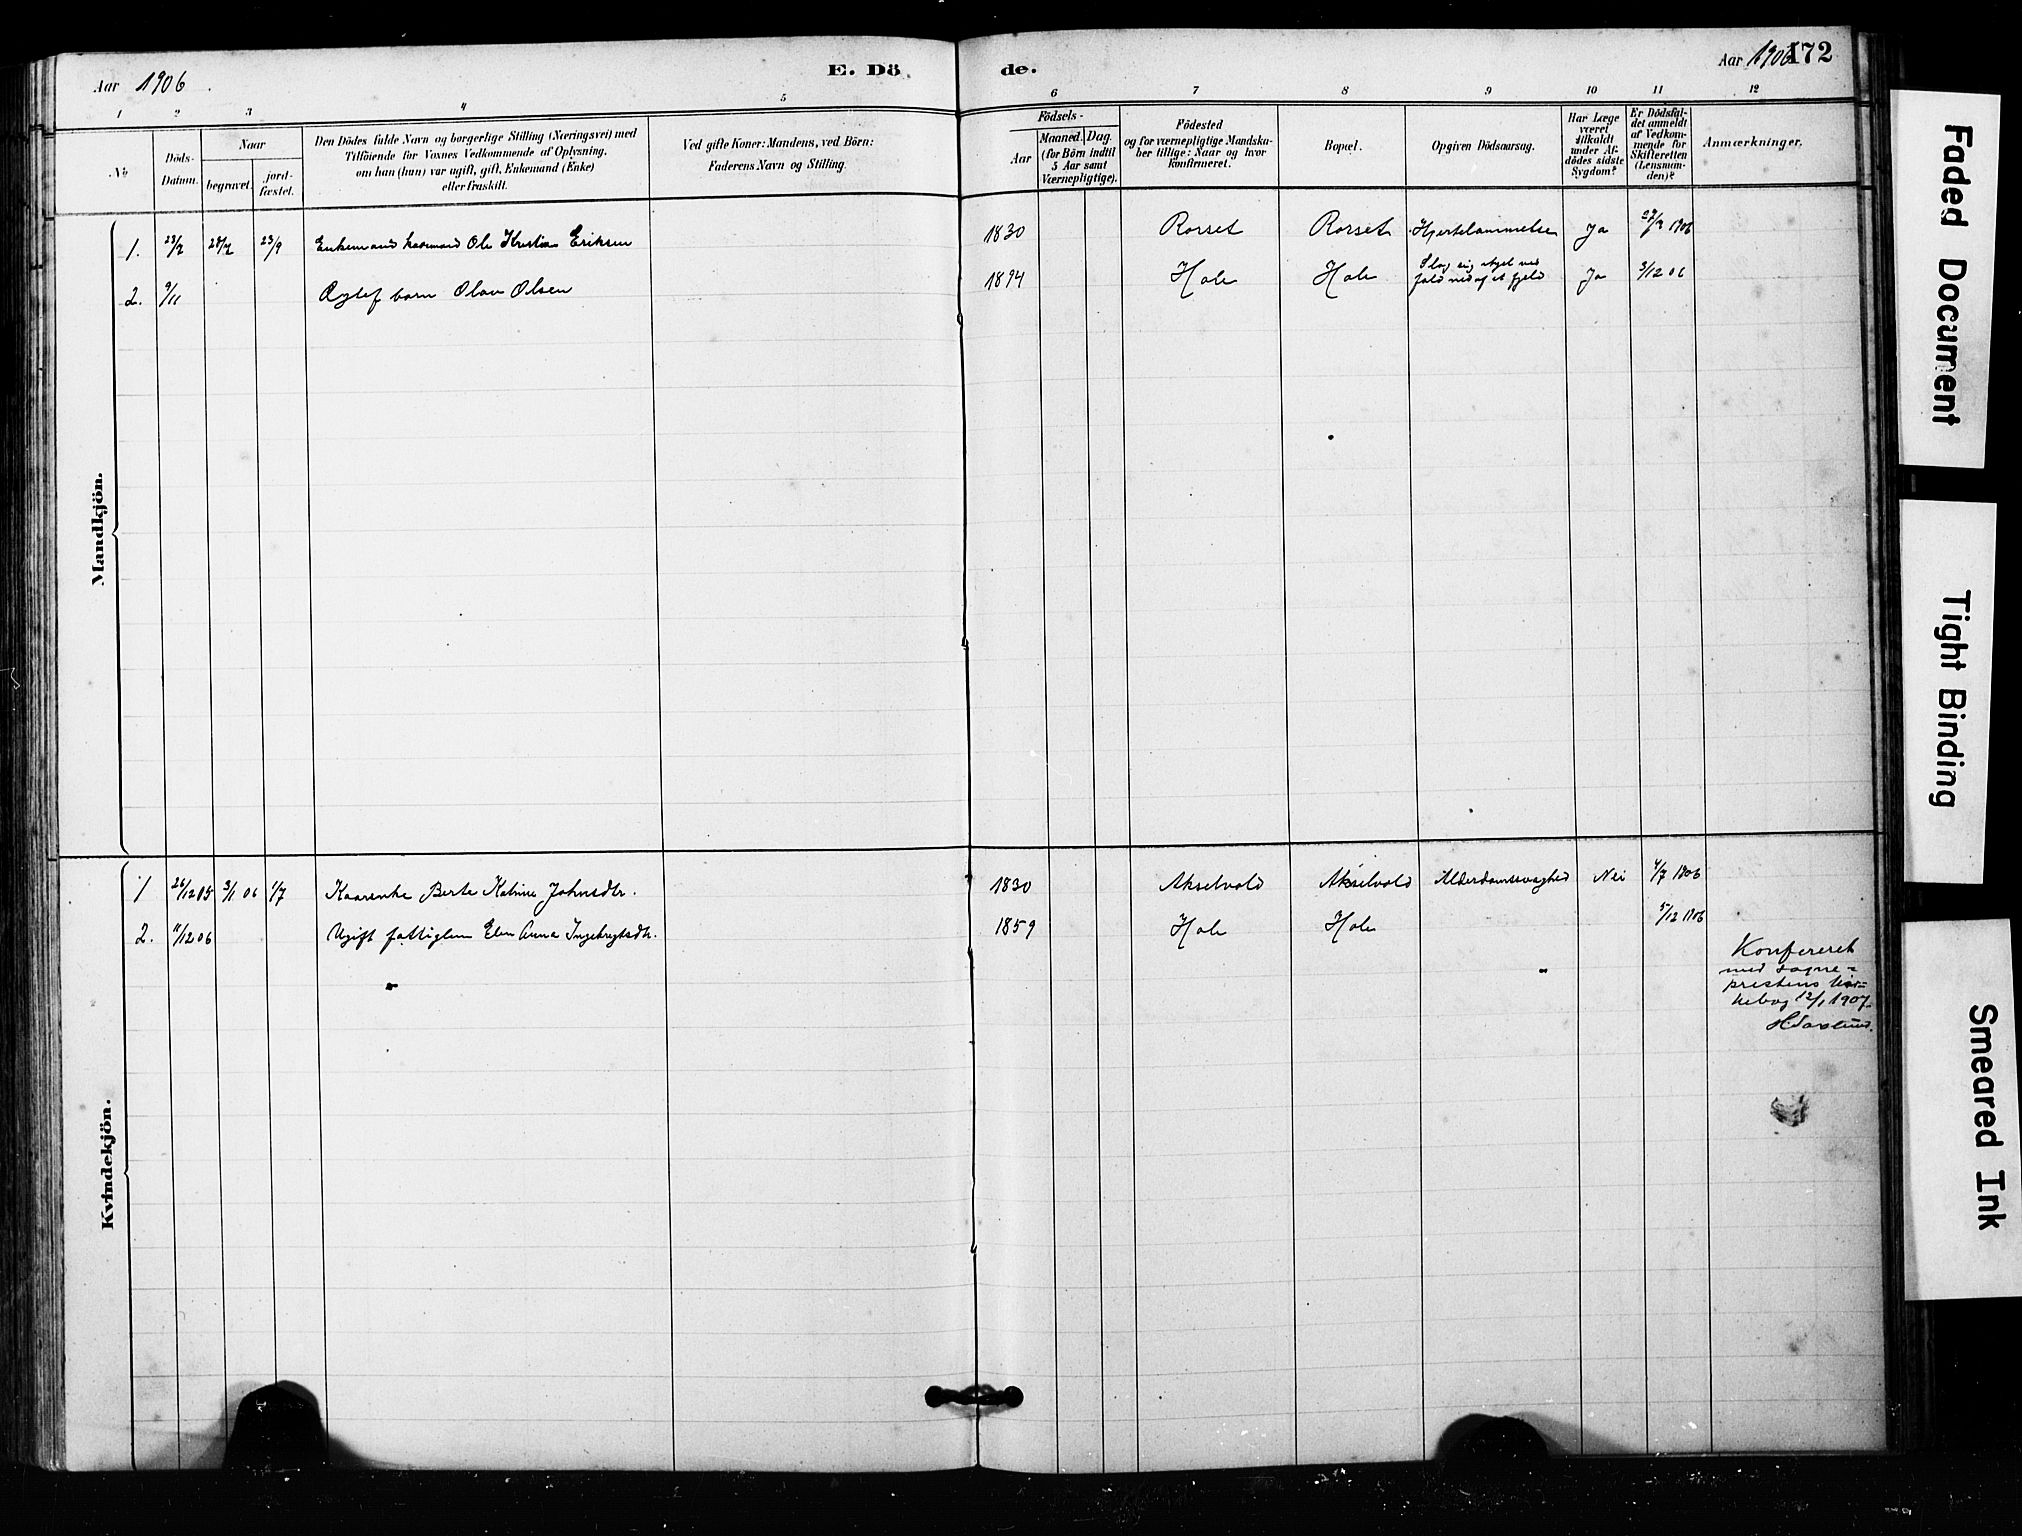 Aar 1906.
E. Dö
de.
Aar 1906
172
1 2 3 4 5
6 7 8 9 10 11 12
No
Döds-
Datum.
Naar
begravet.
jord-
fæstet.
Den Dödes fulde Navn og borgerlige Stilling (Næringsvei) med
Tilföiende for Voxnes Vedkommende af Oplysning,
om han (hun) var ugift, gift, Enkemand (Enke)
eller fraskilt.
Ved gifte Koner: Mandens, ved Börn:
Faderens Navn og Stilling.
Födsels-
Aar
Maaned.
Dag.
(for Börn indtil
5 Aar samt
Værnepligtige).
Födested
og for værnepligtige Mandska-
ber tillige: Naar og hvor
konfirmeret.
Bopæl.
Opgiven Dödsaarsag.
Har Læge
været
tilkaldt
under Af-
dödes sidste
Sygdom?
Er Dödsfal-
det anmeldt
af Vedkom-
mende for
Skifteretten
(Lensman-
den)?
Anmærkninger.
Mandkjön.
1. 23/2 28/2 23/9 Enkemand Ole Kristian Eriksen 1830 Rorset Rorset Hjertelammelse Ja 27/2 1906
2. 9/11 barn Olav Olsen 1894 Hole Hole Slog sig ihjel ved
fald ned af et fjeld Ja 3/12 06
Kvindekjön.
1 26/12 05 3/1 06 1/7 Kaarenke Berte Katrine Johnsdtr. 1830 Akselvold Akselvold Alderdomssvaghed Nei 4/7 1906
2. 11/12 06 Ugift fattiglem Elen Anna Ingebrigtsdtr. 1859 Hole Hole 5/12 1906
Konfereret
med sogne-
prestens kir-
kebog 12/1 1907.
Faded Document
Tight Binding
Smeared Ink